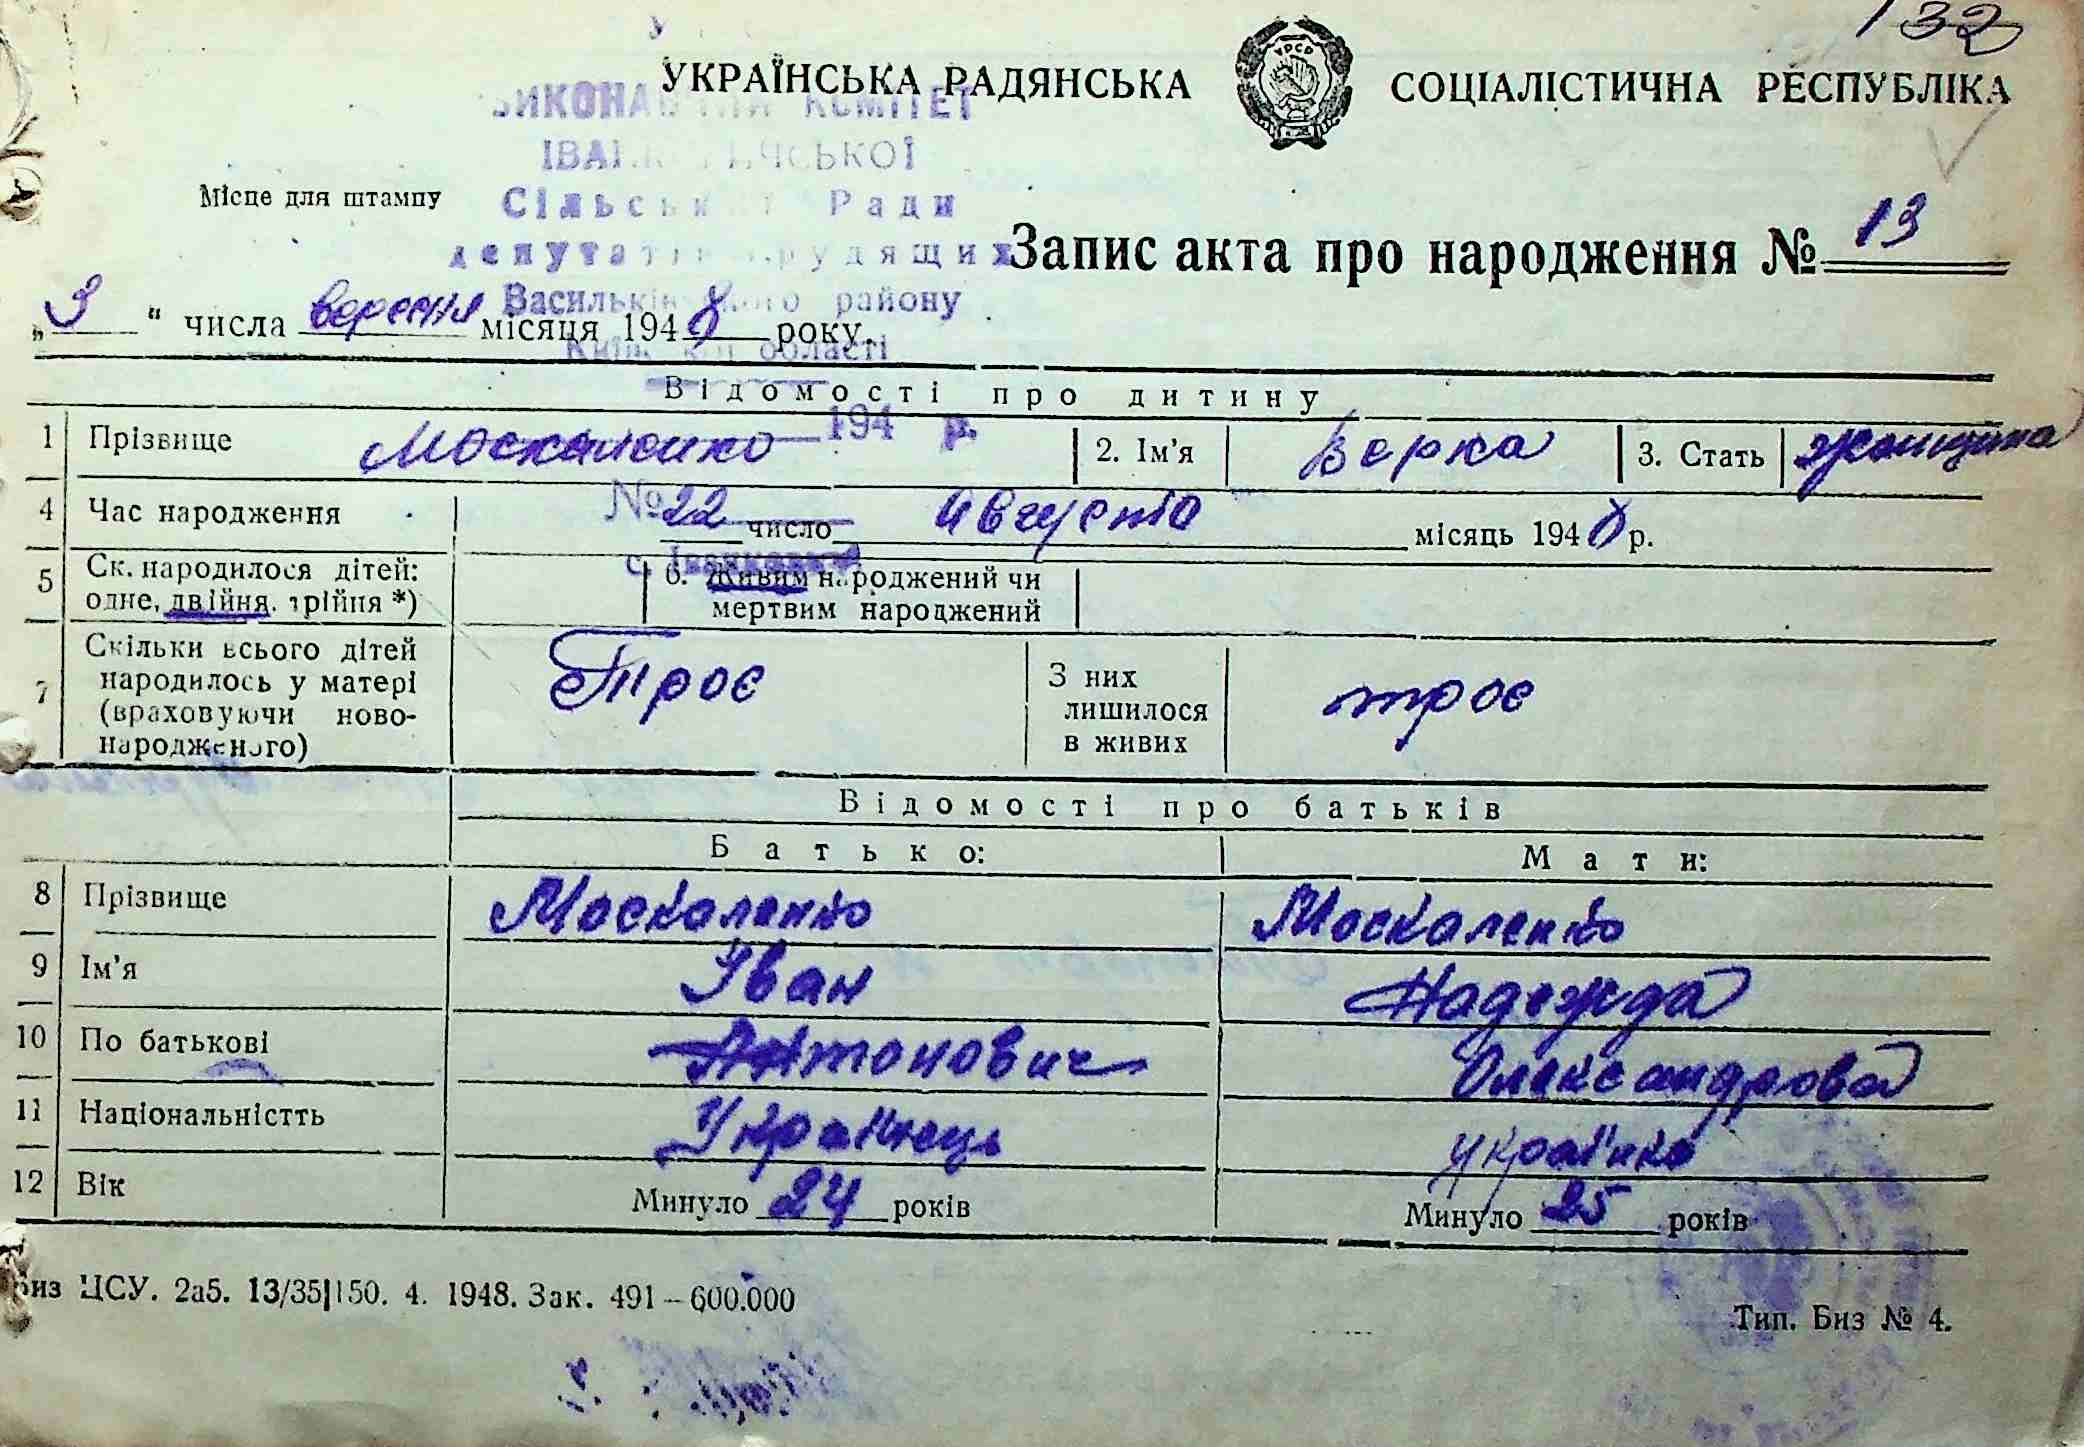 132
УКРАЇНСЬКА РАДЯНСЬКА СОЦІАЛІСТИЧНА РЕСПУБЛІКА
КОМІТЕТ
Місце для штампу
Сільської Ради
депутатів трудящих
Запис акта про народження № 13
Васильківського району
„3“ числа вересня місяця 1948 року.
Київської області
Відомості про дитину
194 р.
1 Прізвище Москаленко 2. Ім'я Верка 3. Стать женщина
№
4 Час народження 22 число Августа місяць 1948 р.
5 Ск. народилося дітей: одне, двійня, трійня *) 6. Живим народжений чи мертвим народжений
7 Скільки всього дітей народилось у матері (враховуючи ново-народженого) Троє З них лишилося в живих троє
Відомості про батьків
Батько: Мати:
8 Прізвище Москаленко Москаленко
9 Ім'я Іван Надежда
10 По батькові Антонович Олександрова
11 Національністть Українець українка
12 Вік Минуло 24 років Минуло 25 років
Биз ЦСУ. 2а5. 13/35|150. 4. 1948. Зак. 491 – 600.000
Тип. Биз № 4.